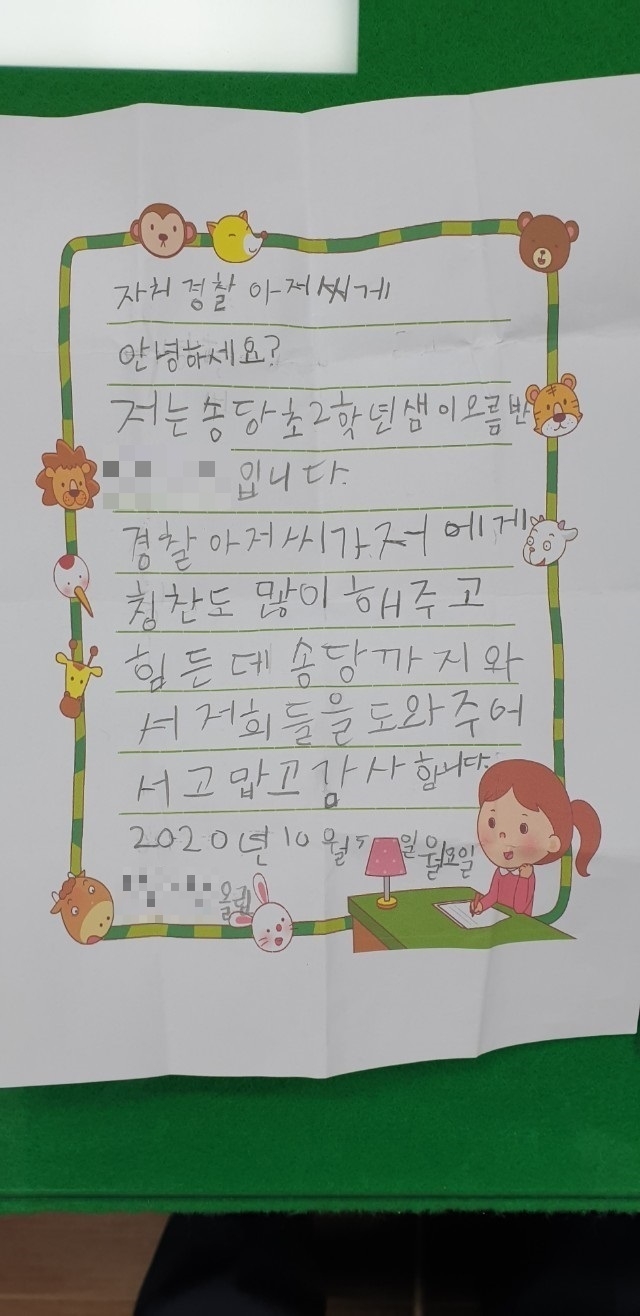 자치 경찰 아저씨게
안녕하세요?
저는 송당초2학년샘이오름반
입니다.
경찰 아저씨가 저에게
칭찬도 많이 해주고
힘든데 송당까지와
서 저희들을 도와주어
서고맙고감사합니다.
2020년 10월 5일월요일
올림